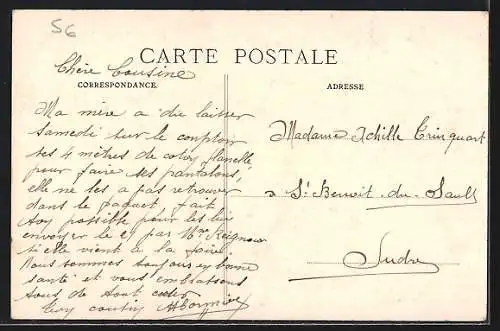 56
CARTE POSTALE
Chère Cousine
CORRESPONDANCE
ADRESSE
Ma mère a du laisser
samedi sur le comptoir
ses 4 mètres de coton flanelle
pour faire ses pantalons,
elle ne les a pas retrouver
dans le paquet, fait
possible pour les lui
envoyer le 29 par Mme
si elle vient à la foire
Nous sommes toujours en bonne
santé et vous embrassons
tous de tout cœur
Ton cousin
Madame Achille Trinquart
à St Benoit-du-Sault
Indre